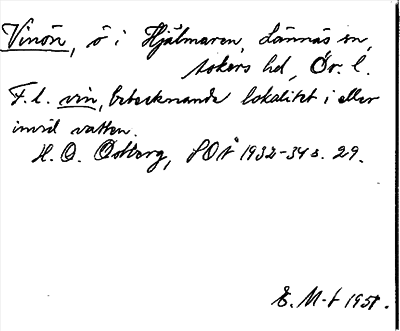 Vinön, ö i Hjälmaren, Lännäs sn,
Askers hd, Ör. l.
F. l. vin, betecknande lokalitet i eller
invid vatten.
H. O. Östberg, SOÅ 1932-34 s. 29.
E. M-t 1951.